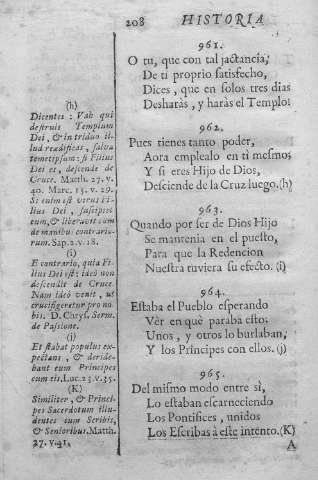 208 HISTORIA
(h)
Dicentes: Vah qui
destruis Templum
Dei, & in triduo il-
lud reædificas, salva
temetipsum: si Filius
Dei es, descende de
Cruce. Matth. 27. v.
40. Marc. 15. v. 29.
Si enim est verus Fi-
lius Dei, suscipiet
eum, & liberavit eum
de manibus contrario-
rum. Sap. 2. v. 18.
(i)
E contrario, quia Fi-
lius Dei est: ideò non
descendit de Cruce.
Nam ideò venit, ut
crucifigeretur pro no-
bis. D. Chrys. Serm.
de Passione.
(j)
Et stabat populus ex-
pectans, & deride-
bant eum Principes
cum eis. Luc. 23. v. 35.
(K)
Similiter, & Princi-
pes Sacerdotum illu-
dentes cum Scribis,
& Senioribus. Matth.
27. v. 41.
961.
O tu, que con tal jactancia,
De ti proprio satisfecho,
Dices, que en solos tres dias
Desharàs, y haràs el Templo:
962.
Pues tienes tanto poder,
Aora emplealo en ti mesmo;
Y si eres Hijo de Dios,
Desciende de la Cruz luego. (h)
963.
Quando por ser de Dios Hijo
Se mantenia en el puesto,
Para que la Redencion
Nuestra tuviera su efecto. (i)
964.
Estaba el Pueblo esperando
Vèr en què paraba esto:
Unos, y otros lo burlaban,
Y los Principes con ellos. (j)
965.
Del mismo modo entre sì,
Lo estaban escarneciendo
Los Pontifices, unidos
Los Escribas à este intento. (K)
A